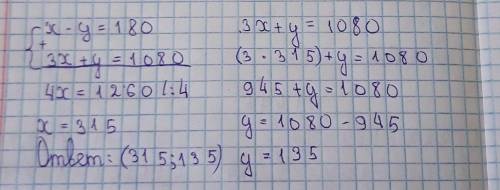 x - y = 180
+
3x + y = 1080
4x = 1260 /:4
x = 315
Ответ: (315;135)
3x + y = 1080
(3 · 315) + y = 1080
945 + y = 1080
y = 1080 - 945
y = 135